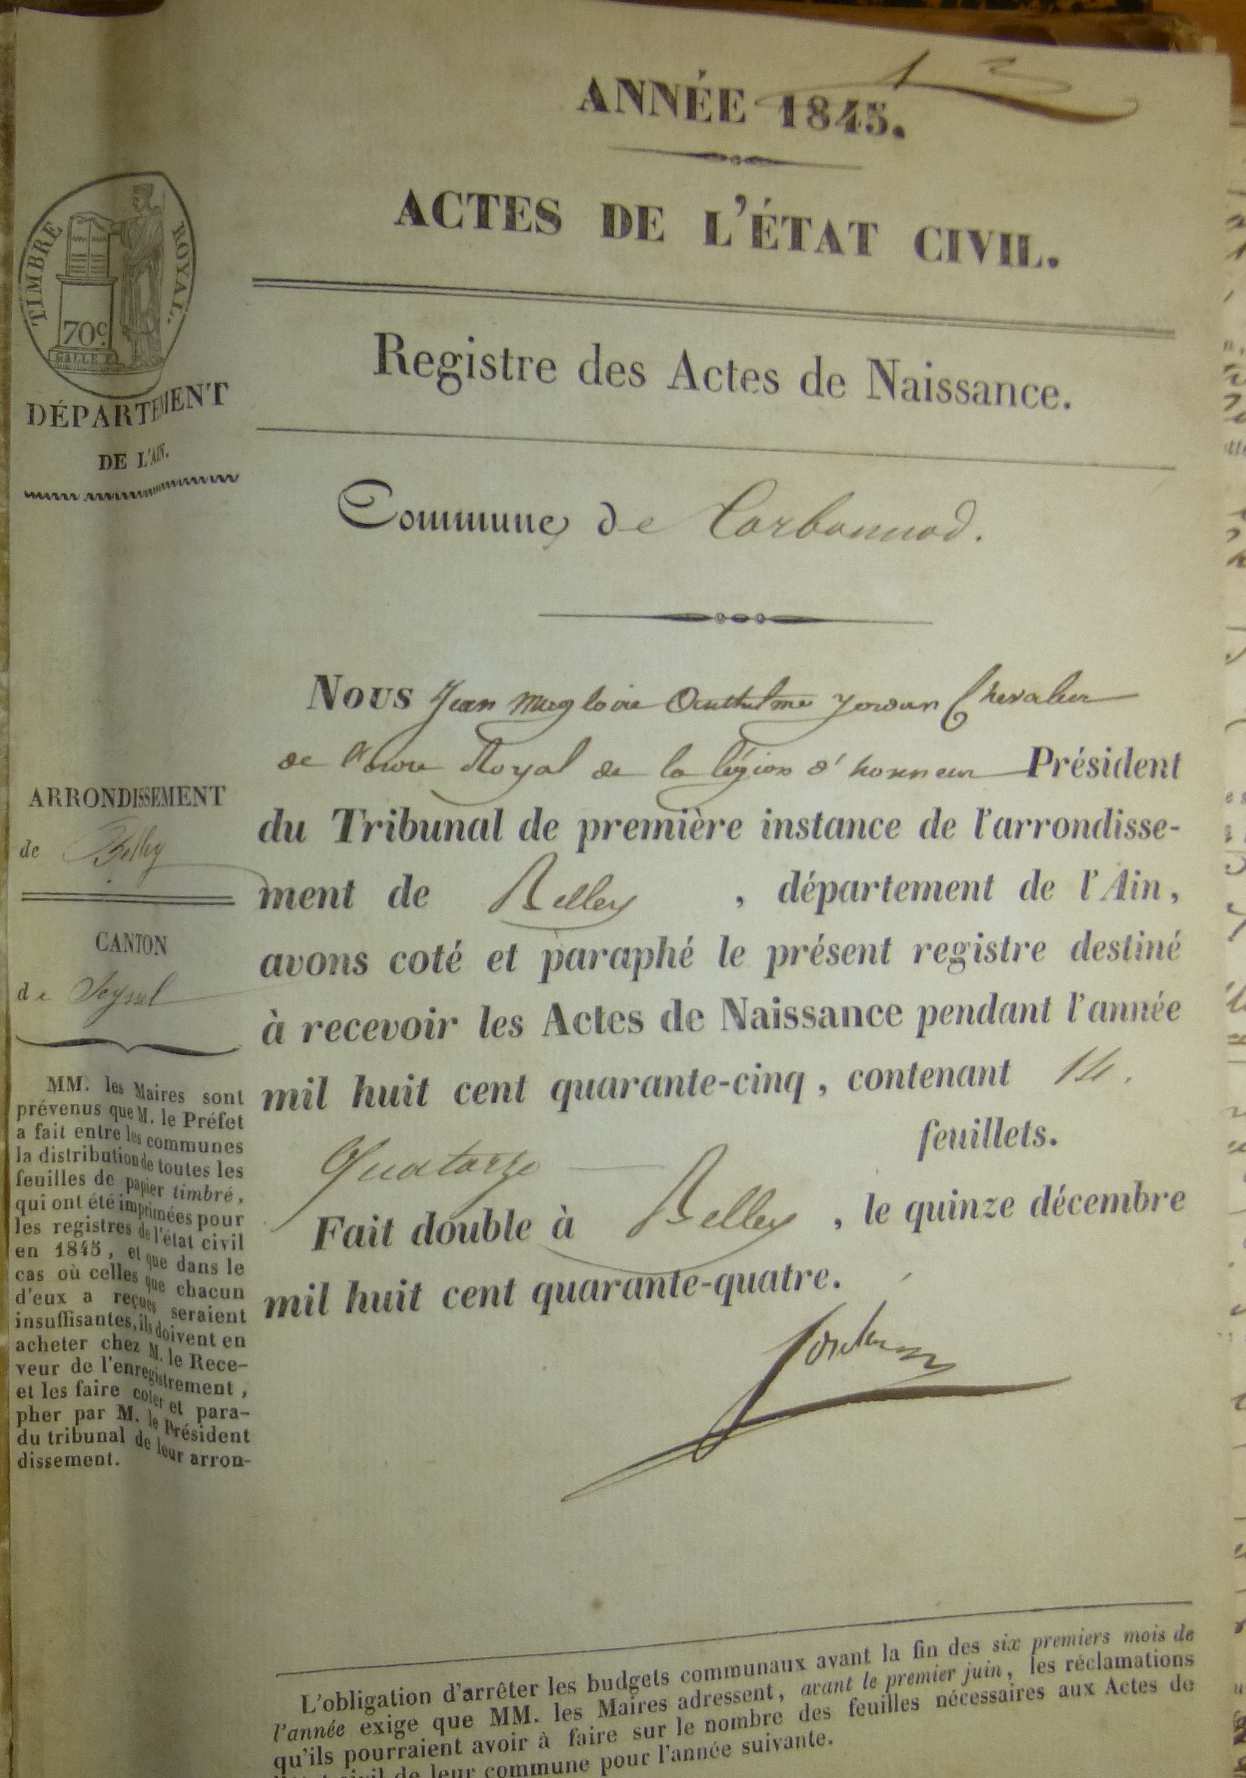 ANNÉE 1845.
ACTES DE L'ÉTAT CIVIL.
TIMBRE ROYAL.
70c
DÉPARTEMENT
DE L'AIN.
Registre des Actes de Naissance.
Commune de Corbonnod.
Nous Jean Magloire Jordan Chevalier
de l'ordre Royal de la légion d'honneur Président
du Tribunal de première instance de l'arrondisse-
ment de Belley, département de l'Ain,
avons coté et paraphé le présent registre destiné
à recevoir les Actes de Naissance pendant l'année
mil huit cent quarante-cinq, contenant 14.
Quatorze feuillets.
Fait double à Belley, le quinze décembre
mil huit cent quarante-quatre.
Jordan
ARRONDISSEMENT
de Belley
CANTON
de Seyssel
MM. les Maires sont
prévenus que M. le Préfet
a fait entre les communes
la distribution de toutes les
feuilles de papier timbré,
qui ont été imprimées pour
les registres de l'état civil
en 1845, et que dans le
cas où celles que chacun
d'eux a reçues seraient
insuffisantes, ils doivent en
acheter chez M. le Rece-
veur de l'enregistrement,
et les faire coter et para-
pher par M. le Président
du tribunal de leur arron-
dissement.
L'obligation d'arrêter les budgets communaux avant la fin des six premiers mois de
l'année exige que MM. les Maires adressent, avant le premier juin, les réclamations
qu'ils pourraient avoir à faire sur le nombre des feuilles nécessaires aux Actes de
l'état civil de leur commune pour l'année suivante.